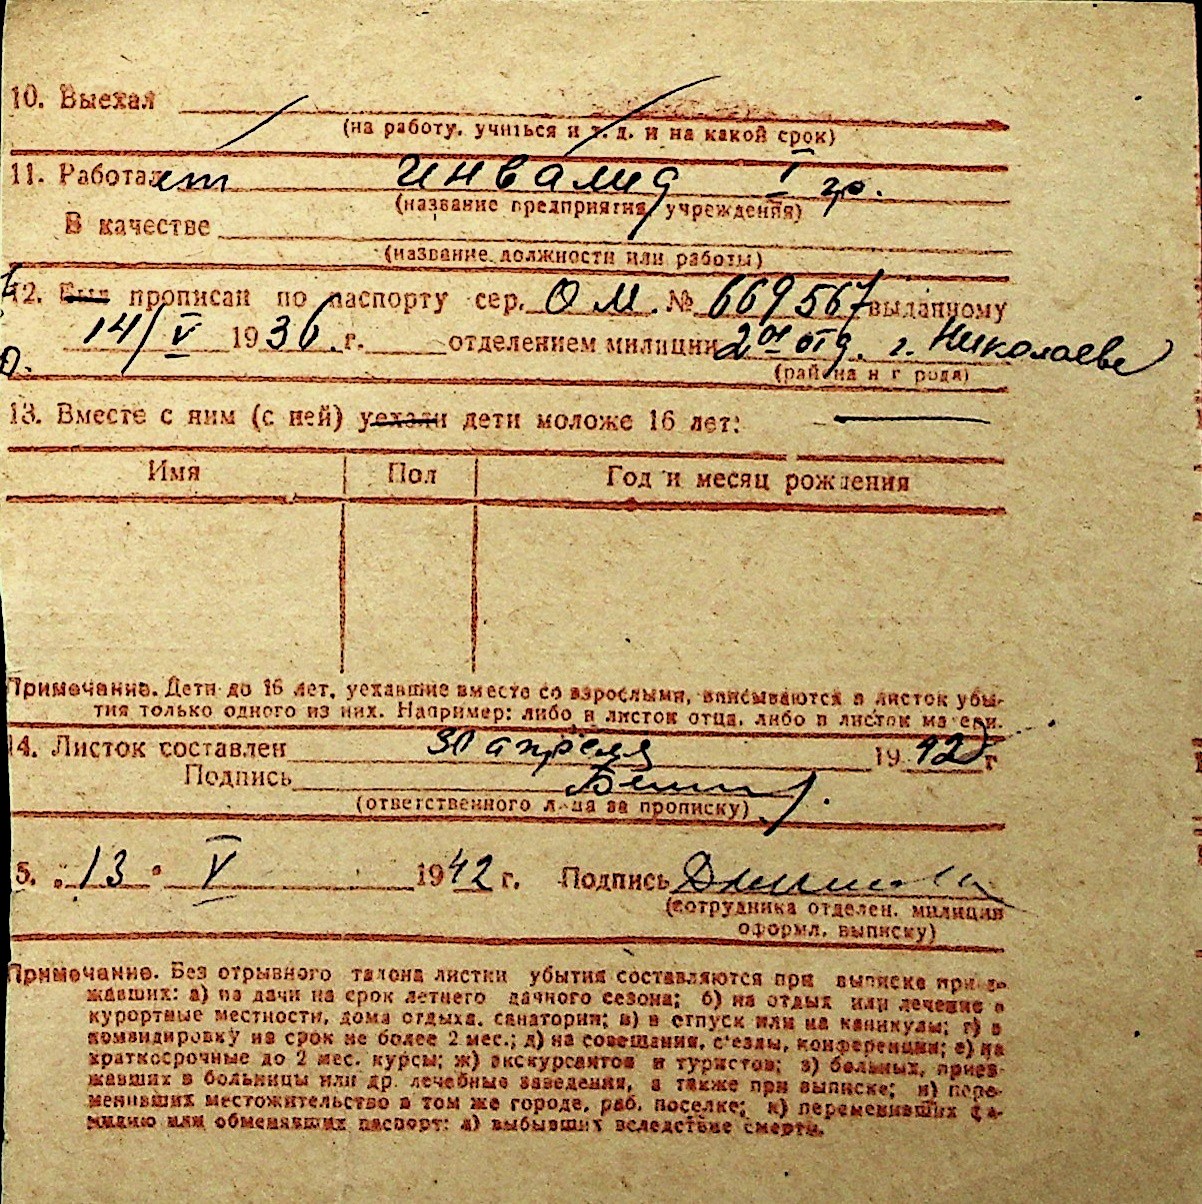 10. Выехал
(на работу, учиться и т. д. и на какой срок)
11. Работает инвалид I гр.
(название предприятия, учреждения)
В качестве
(название должности или работы)
12. Был прописан по паспорту сер. О М. № 669567 выданному
14/V 1936 г. отделением милиции 2ое отд. г. Николаеве
(района и города)
13. Вместе с ним (с ней) уехали дети моложе 16 лет:
Имя Пол Год и месяц рождения
Примечание. Дети до 16 лет, уехавшие вместе со взрослыми, вписываются в листок убы-
тия только одного из них. Например: либо в листок отца, либо в листок матери.
14. Листок составлен 30 апреля 1942 г
Подпись
(ответственного лица за прописку)
5. „13" V 1942 г. Подпись
(сотрудника отделен. милиции
оформл. выписку)
Примечание. Без отрывного талона листки убытия составляются при выписке приез-
жавших: а) на дачи на срок летнего дачного сезона; б) на отдых или лечение в
курортные местности, дома отдыха, санатории; в) в отпуск или на каникулы; г) в
командировку на срок не более 2 мес.; д) на совещания, с'езды, конференции; е) на
краткосрочные до 2 мес. курсы; ж) экскурсантов и туристов; з) больных, приез-
жавших в больницы или др. лечебные заведения, а также при выписке; и) пере-
менивших местожительство в том же городе, раб. поселке; к) переменивших фа-
милию или обменявших паспорт; л) выбывших вследствие смерти.